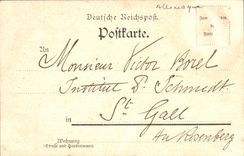 Allemagne
Deutsche Reichspost.
Postkarte.
An
Monsieur Victor Borel
Institut Dr Schmidt
in St Gall
Au Rosenberg
Wohnung
(Straße und Hausnummer)